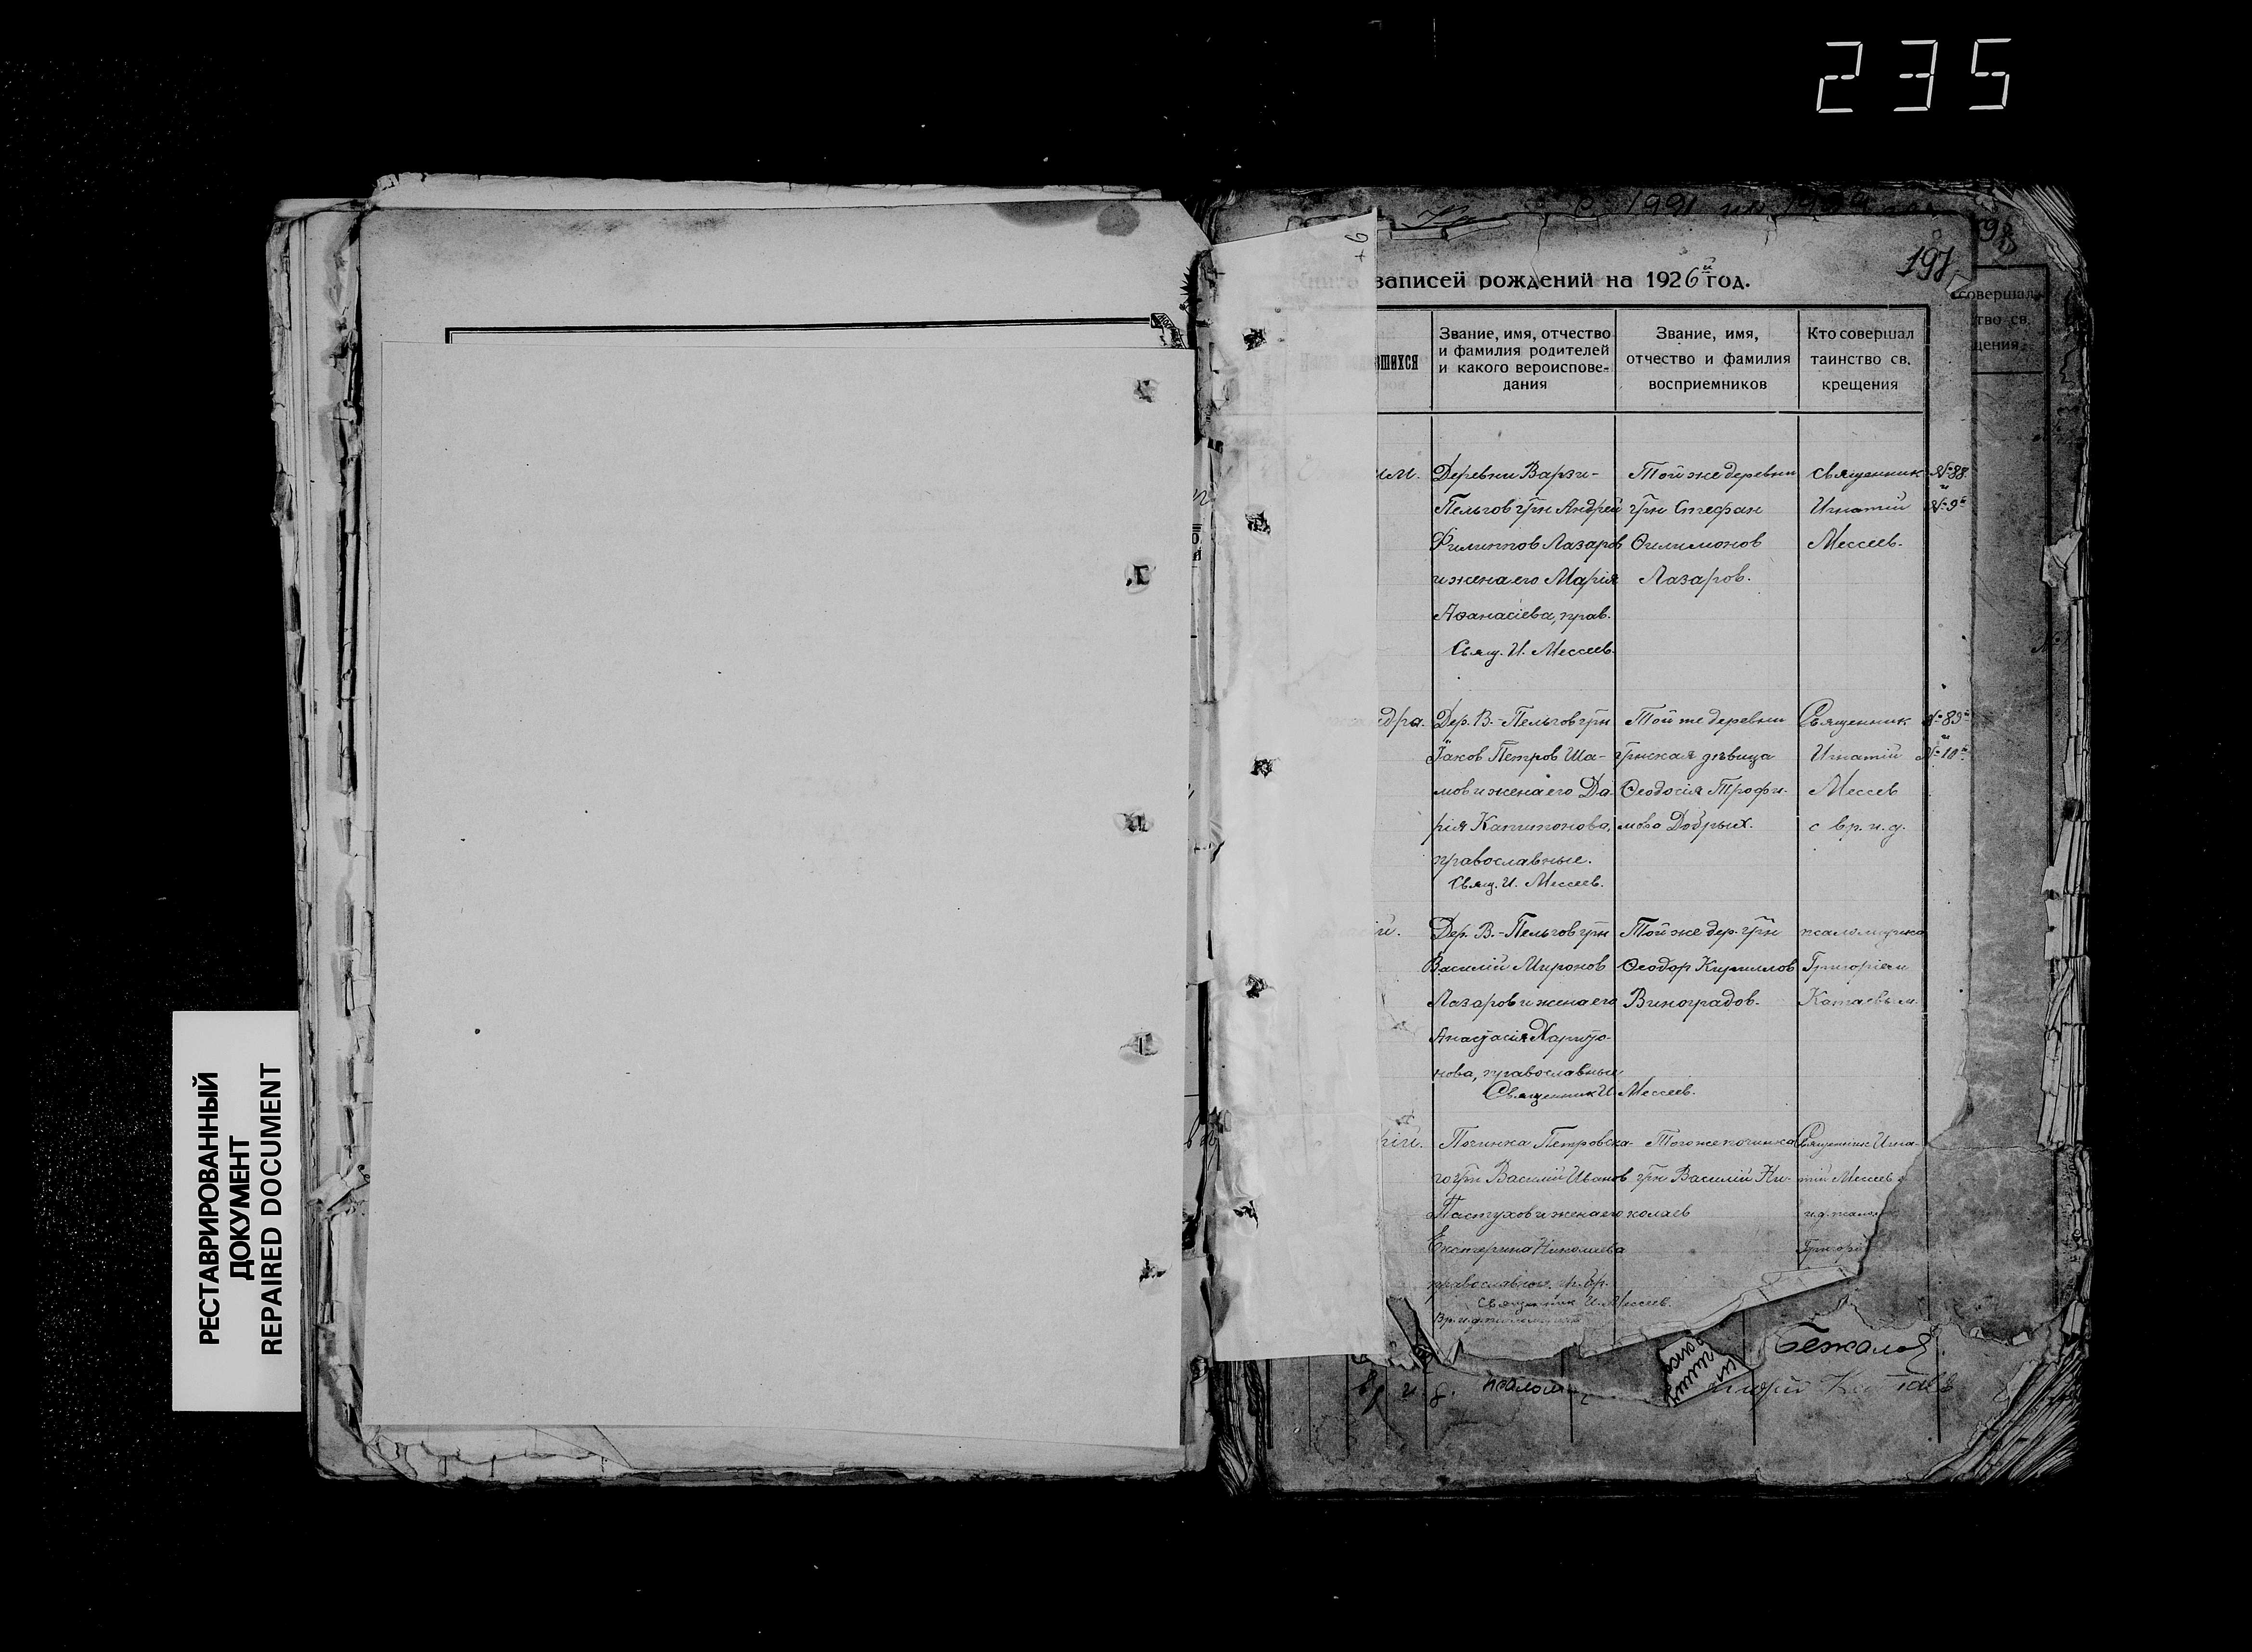 235
РЕСТАВРИРОВАННЫЙ
ДОКУМЕНТ
REPAIRED DOCUMENT
197
записей рождений на 1926й год.
шихся
Звание, имя, отчество
и фамилия родителей
и какого вероиспове-
дания
Звание, имя,
отчество и фамилия
восприемников
Кто совершал
таинство св.
крещения
совершал
тво св.
щения
им.
Деревни Варзи-
Пельгов грн Андрей
Филиппов Лазаров
и жена его Марія
Аѳанасіева, прав.
Свящ. И. Мессеев.
Той же деревни
грн Стефан
Филимонов
Лазаров.
Священник
Игнатій
Мессеев.
№ 88
№ 9й
дра.
Дер. В.-Пельгов грн
Іаков Петров Ша-
мов и жена его Да-
рія Капитонова,
православные.
Свящ. И. Мессеев.
Той же деревни
грнская дѣвица
Ѳеодосія Трофи-
мова Добрых.
Священник
Игнатій
Мессеев
с вр. и. д.
№ 89й
№ 10й
й.
Дер. В.-Пельгов грн
Василій Миронов
Лазаров и жена его
Анастасія Харито-
нова, православные
Священник И. Мессеев.
Той же дер. грн
Ѳеодор Кириллов
Виноградов.
псаломщика
Григоріем
Катаевым.
рій.
Починка Петровска-
го грн Василій Иванов
Пастухов и жена его
Екатерина Николаева
православные.
Священник И. Мессеев.
Того же починка
грн Василій Ни-
колаев
Священник Игна-
тій Мессеев
и. д. псалом
Григорі
псалом